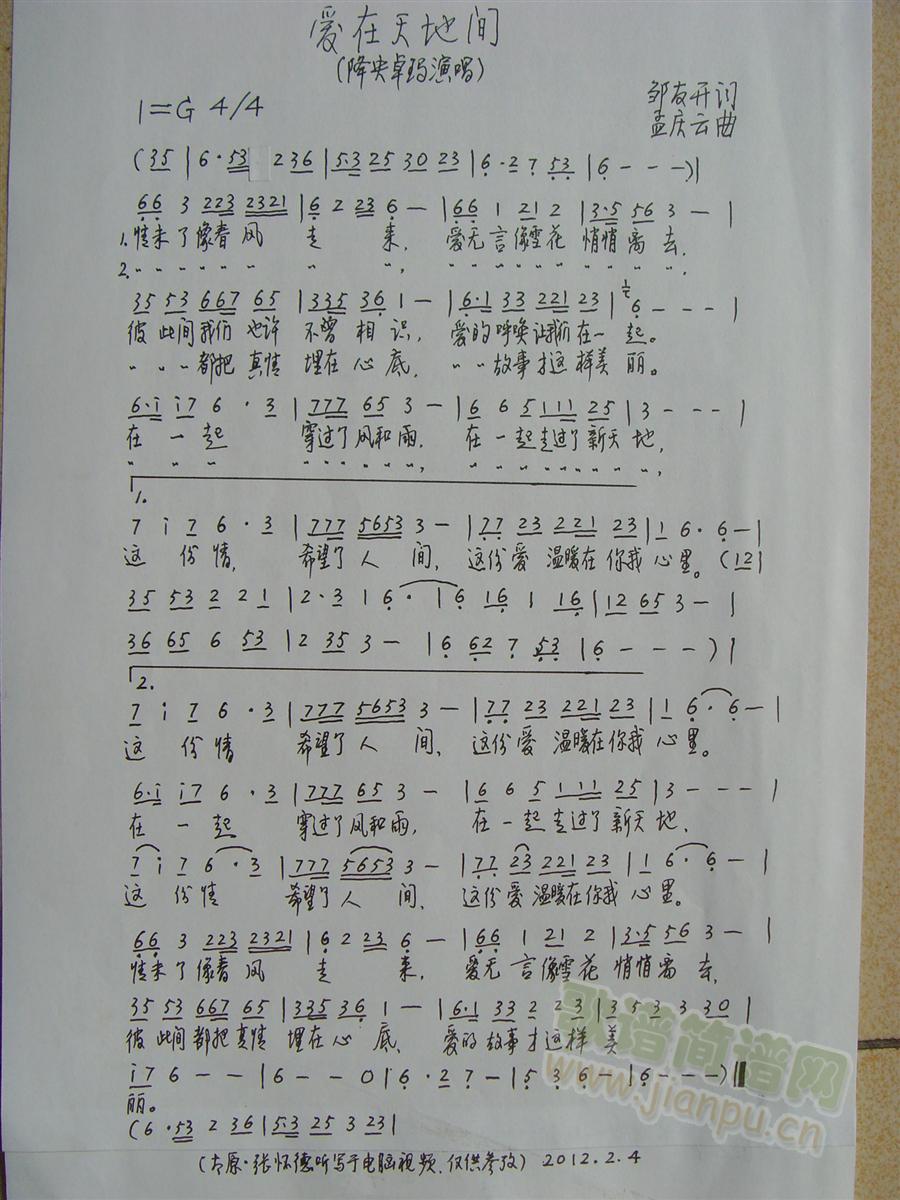 爱在天地间
(降央卓玛演唱)
1=G 4/4
邹友开词
孟庆云曲
(35 | 6·53 236 | 5·3 25 30 23 | 6·27 53 | 6 - - - ) |
66 3 223 2321 | 6 2 23 6 - | 66 1 21 2 | 3·5 56 3 - |
1.情来了像春风 走 来, 爱无言像雪花 悄悄离去,
2. 〃 〃 〃 〃 〃 〃 〃 〃, 〃 〃 〃 〃 〃 〃 〃 〃 〃 〃,
35 53 667 65 | 335 36 1 - | 6·1 33 221 23 | 6 - - - |
彼此间我们也许 不曾相识, 爱的呼唤让我们在一起。
〃 〃 〃都把真情 埋在心底, 〃 〃故事才这样美丽。
6·i i7 6 · 3 | 777 65 3 - | 6 6 5 111 25 | 3 - - - |
在一起 穿过了风和雨, 在一起走过了新天地,
〃 〃 〃 〃 〃 〃 〃 〃 〃, 〃 〃 〃 〃 〃 〃 〃 〃 〃,
1.
7 i 7 6 · 3 | 777 5653 3 - | 77 23 221 23 | 1 6 · 6 - |
这份情, 希望了人间, 这份爱温暖在你我心里。(12|
35 53 2 2 1 | 2·3 1 6 · | 6 16 1 16 | 12 65 3 - |
36 65 6 53 | 2 35 3 - | 6 62 7 53 | 6 - - - ) |
2.
7 i 7 6 · 3 | 777 5653 3 - | 77 23 221 23 | 1 6 · 6 - |
这份情 希望了人间, 这份爱温暖在你我心里。
6·i i7 6 · 3 | 777 65 3 - | 6 6 5 111 25 | 3 - - - |
在一起 穿过了风和雨, 在一起走过了新天地、
7 i 7 6 · 3 | 777 5653 3 - | 77 23 221 23 | 1 6 · 6 - |
这份情 希望了人间, 这份爱温暖在你我心里。
66 3 223 2321 | 6 2 23 6 - | 66 1 21 2 | 3·5 56 3 - |
情来了像春风 走 来, 爱无言像雪花 悄悄离去,
35 53 667 65 | 335 36 1 - | 6·1 33 2 23 | 3 5 3 3 30 |
彼此间都把真情 埋在心底, 爱的故事才这样美
i 7 6 - - | 6 - - 0 | 6 · 2 7 - | 5 3 6 - | 6 - - - ) ||
丽。
(6·53 2 36 | 5·3 25 3 23 |
(太原·张怀德听写于电脑视频,仅供参改) 2012.2.4
歌谱简谱网
www.jianpu.cn